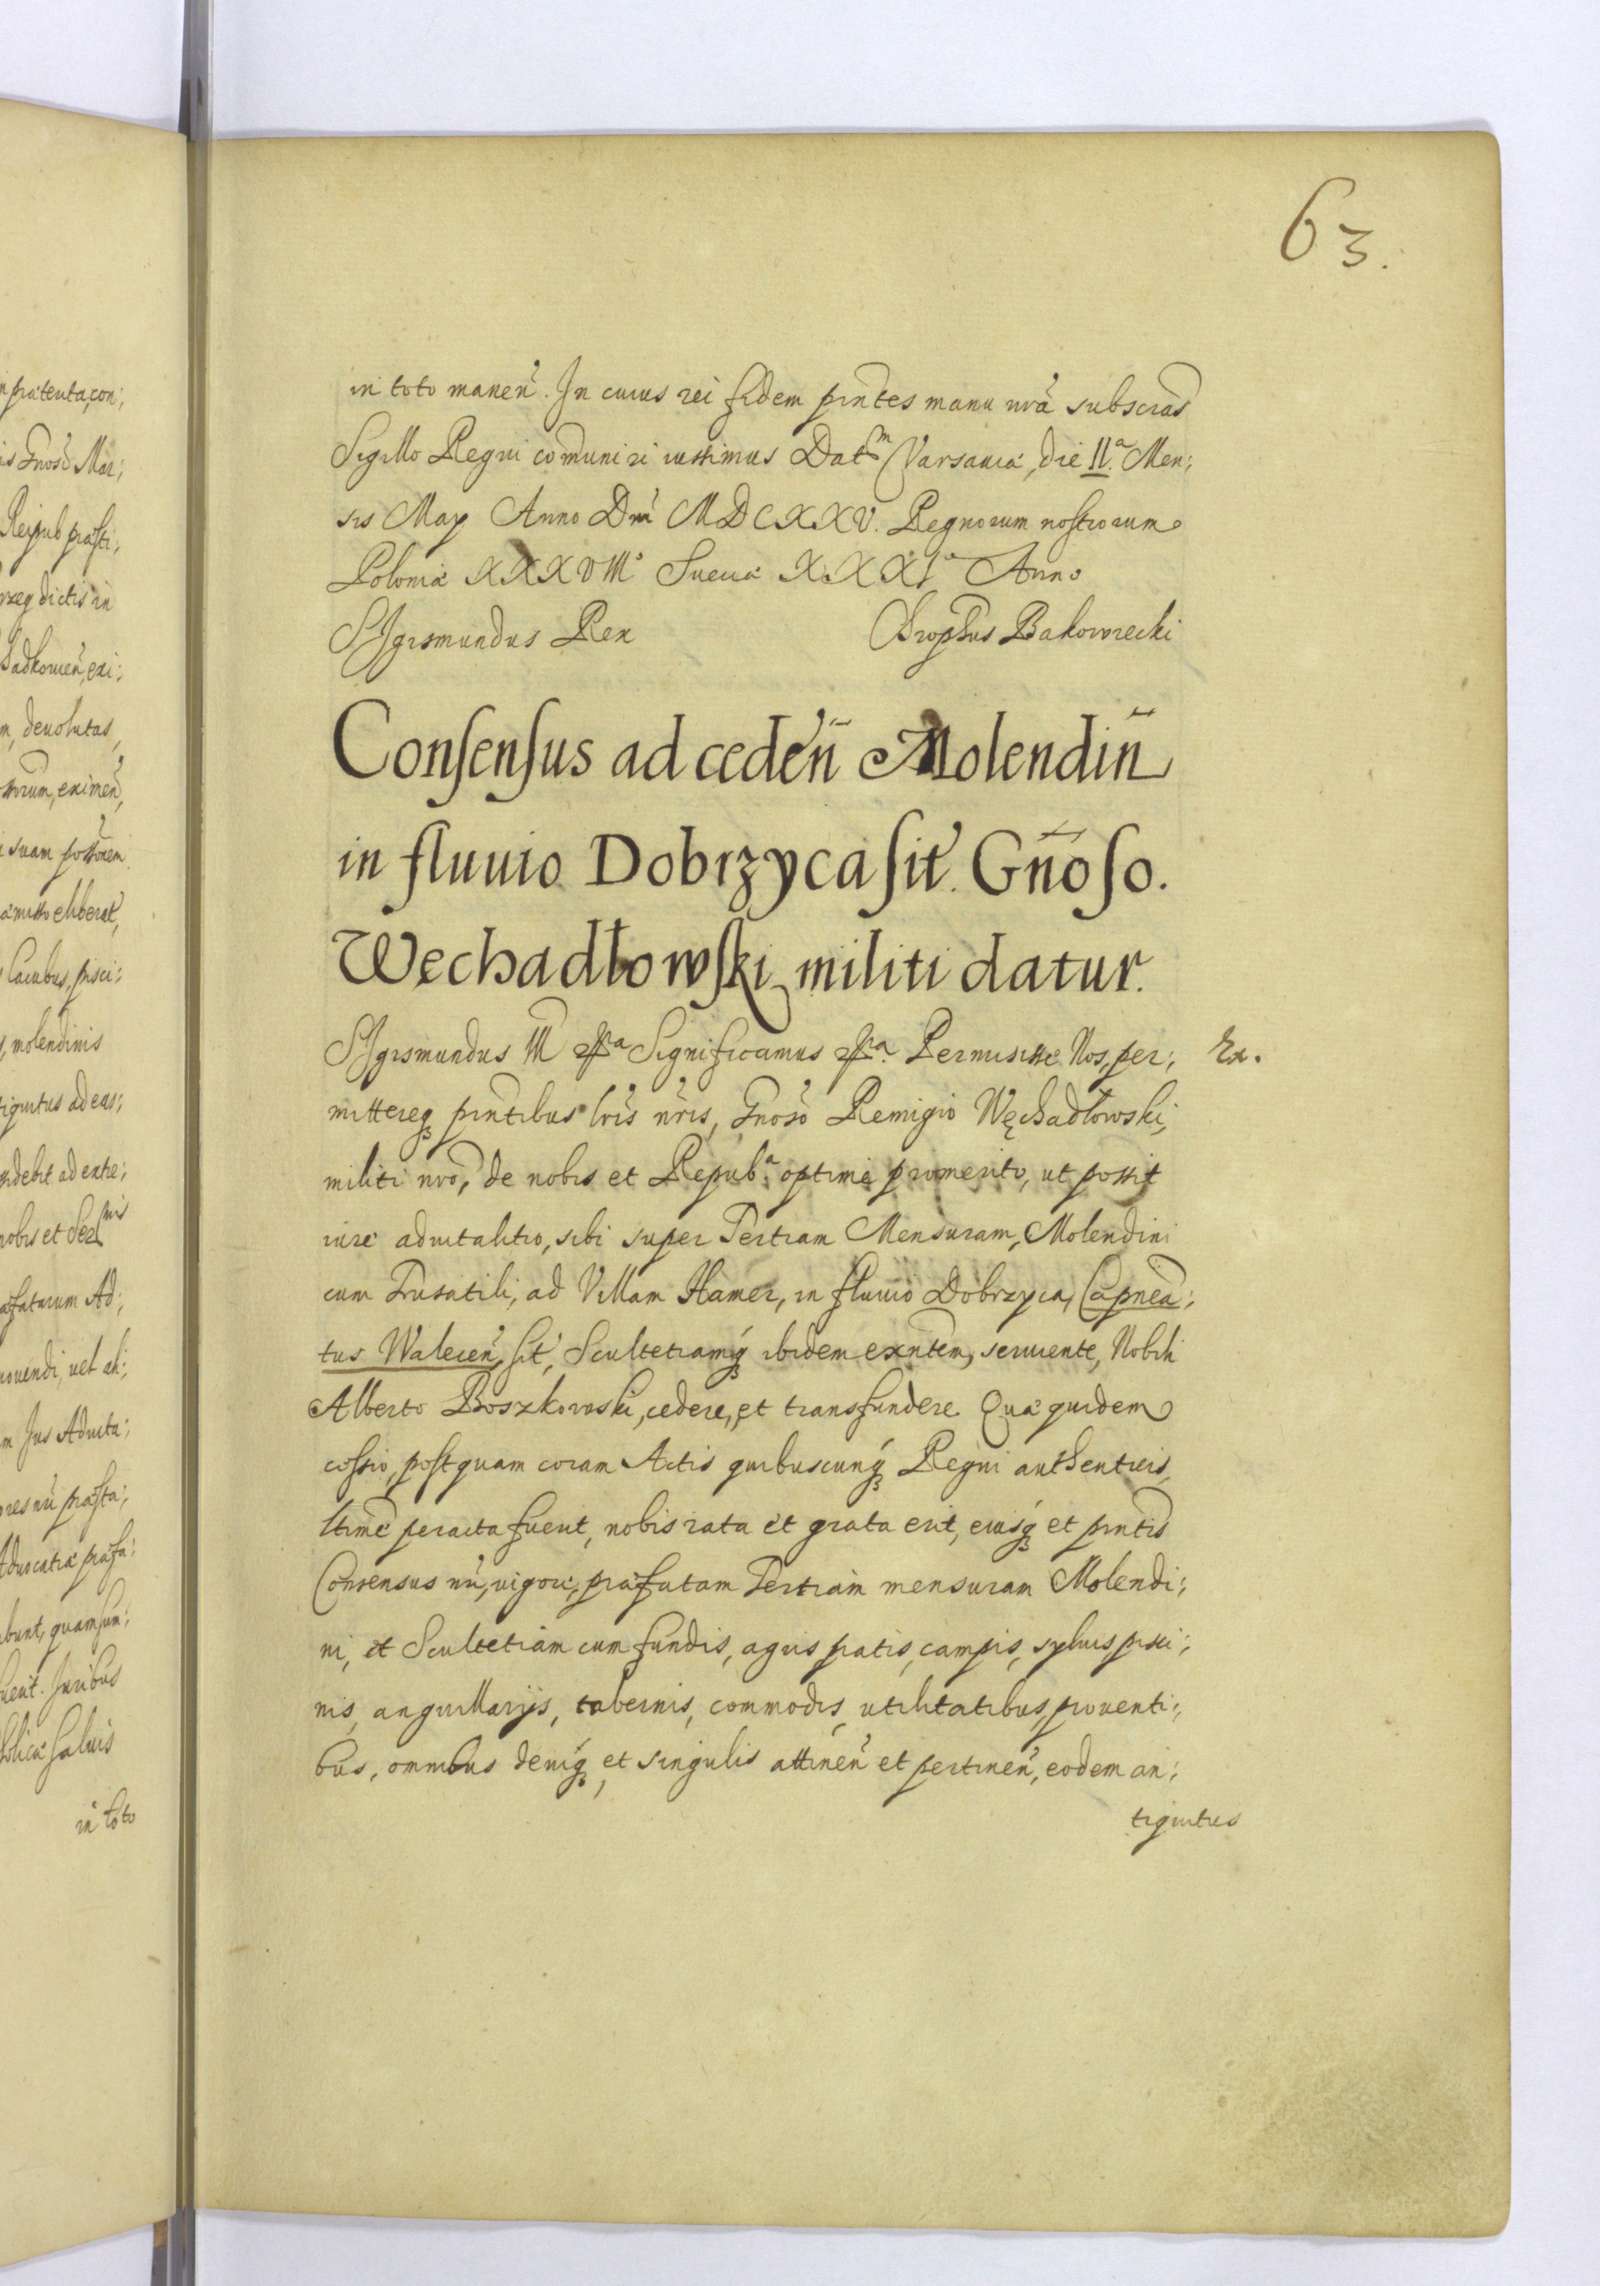 63.
in toto manen. In cuius rei fidem pntes manu nra subscras
Sigillo Regni comuniri iussimus Datm Varsauiæ, die II.a Men;
sis Maij Anno Dni MDCXXV. Regnorum nostrorum
Poloniæ XXXVIIIo Sueciæ XXXIo Anno
SIgismundus Rex Chrophus Bakowiecki
Consensus ad ceden Molendin
in fluuio Dobrzyca sit. Gnoso.
Wechadłowski militi datur.
SIgismundus III Significamus Permisisse Nos, per; Ex.
mittereq pntibus lris nris, Gnoso Remigio Węchadłowski,
militi nro, de nobis et Repub.a optimè promerito, ut possit
iure aduitalitio, sibi super Tertiam Mensuram, Molendini
cum Trusatili, ad Villam Hamer, in fluuio Dobrzyca, Capnea;
tus Walecen, sit, Scultetiamq ibidem exntem, seruiente, Nobili
Alberto Boszkowski, cedere, et transfundere Quæ quidem
cessio, postquam coram Actis quibuscunq Regni authenticis,
ltime peracta fuerit, nobis rata et grata erit, eiusq et pntis
Consensus nri, uigore, præfatam Tertiam mensuram Molendi;
ni, et Scultetiam cum fundis, agris pratis, campis, syluis pisci;
nis, anguillarijs, tabernis, commodis, utilitatibus, prouenti;
bus, omnibus deniq, et singulis attinen et pertinen, eodem an;
tiquitus
n prætenta, con;
is Gnoso Mar;
Reipub præsti,
rzeg dictis in
Sadkowien, exi;
m, deuolutas,
eximen,
suam possonem
liberat,
lacubus, pisci;
molendinis
tiquitus ad eas;
debit ad extre;
nobis et Sermis
æfatarum Ad;
mouendi, uel ali;
m Jus Aduita;
ores nri præsta;
Aduocatiæ præfa;
ebunt, quamsum;
uerit. Juribus
tholicæ saluis
in toto